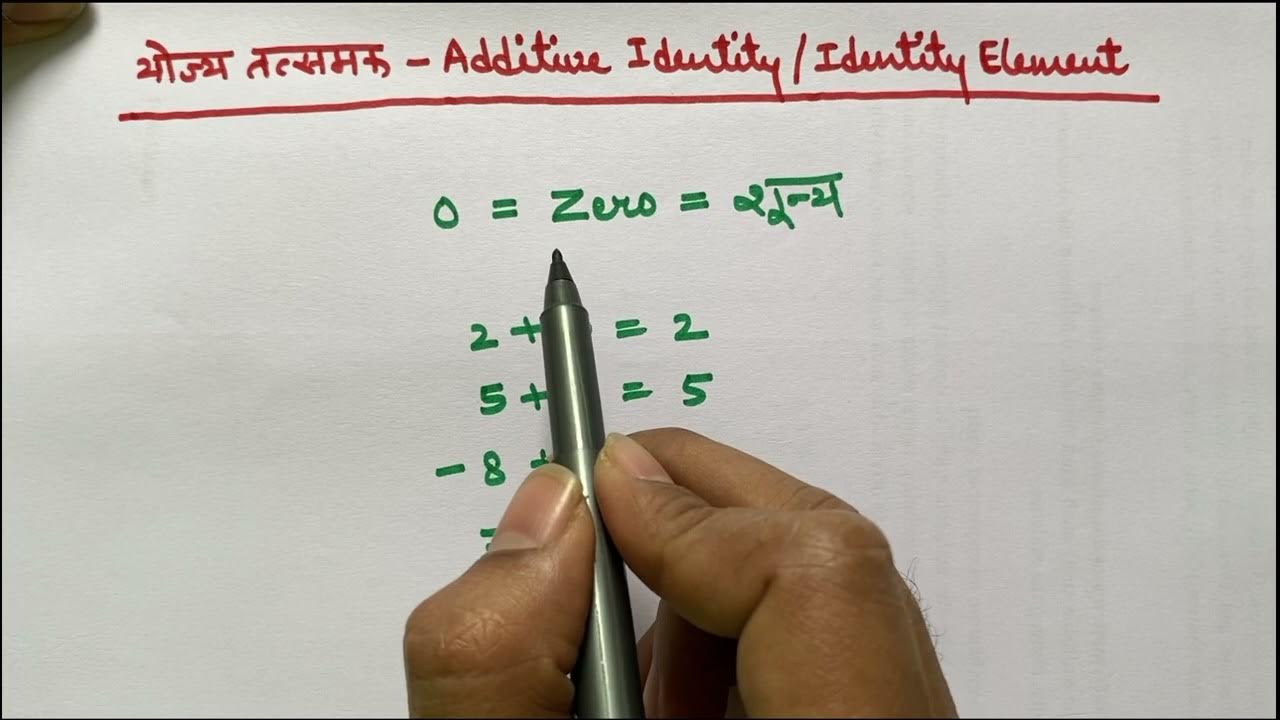 योज्य तत्समक – Additive Identity / Identity Element
0 = Zero = शून्य
2 + = 2
5 + = 5
- 8 +